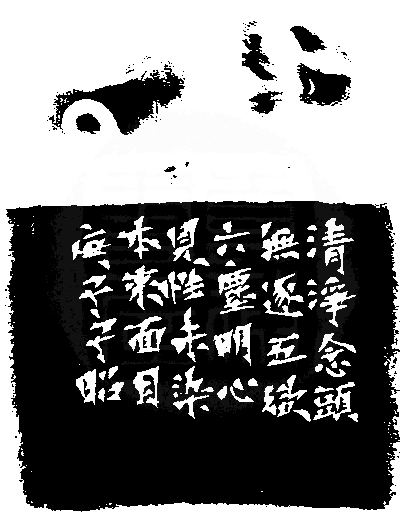 清淨念頭
無逐五欲
六塵明心
見性未染
本來面目
庚子子昭